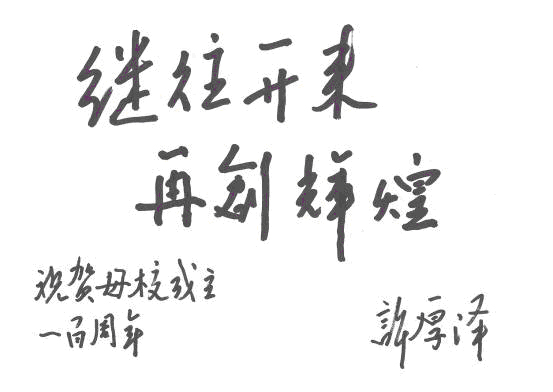 继往开来
再创辉煌
祝贺母校成立
一百周年
许厚泽